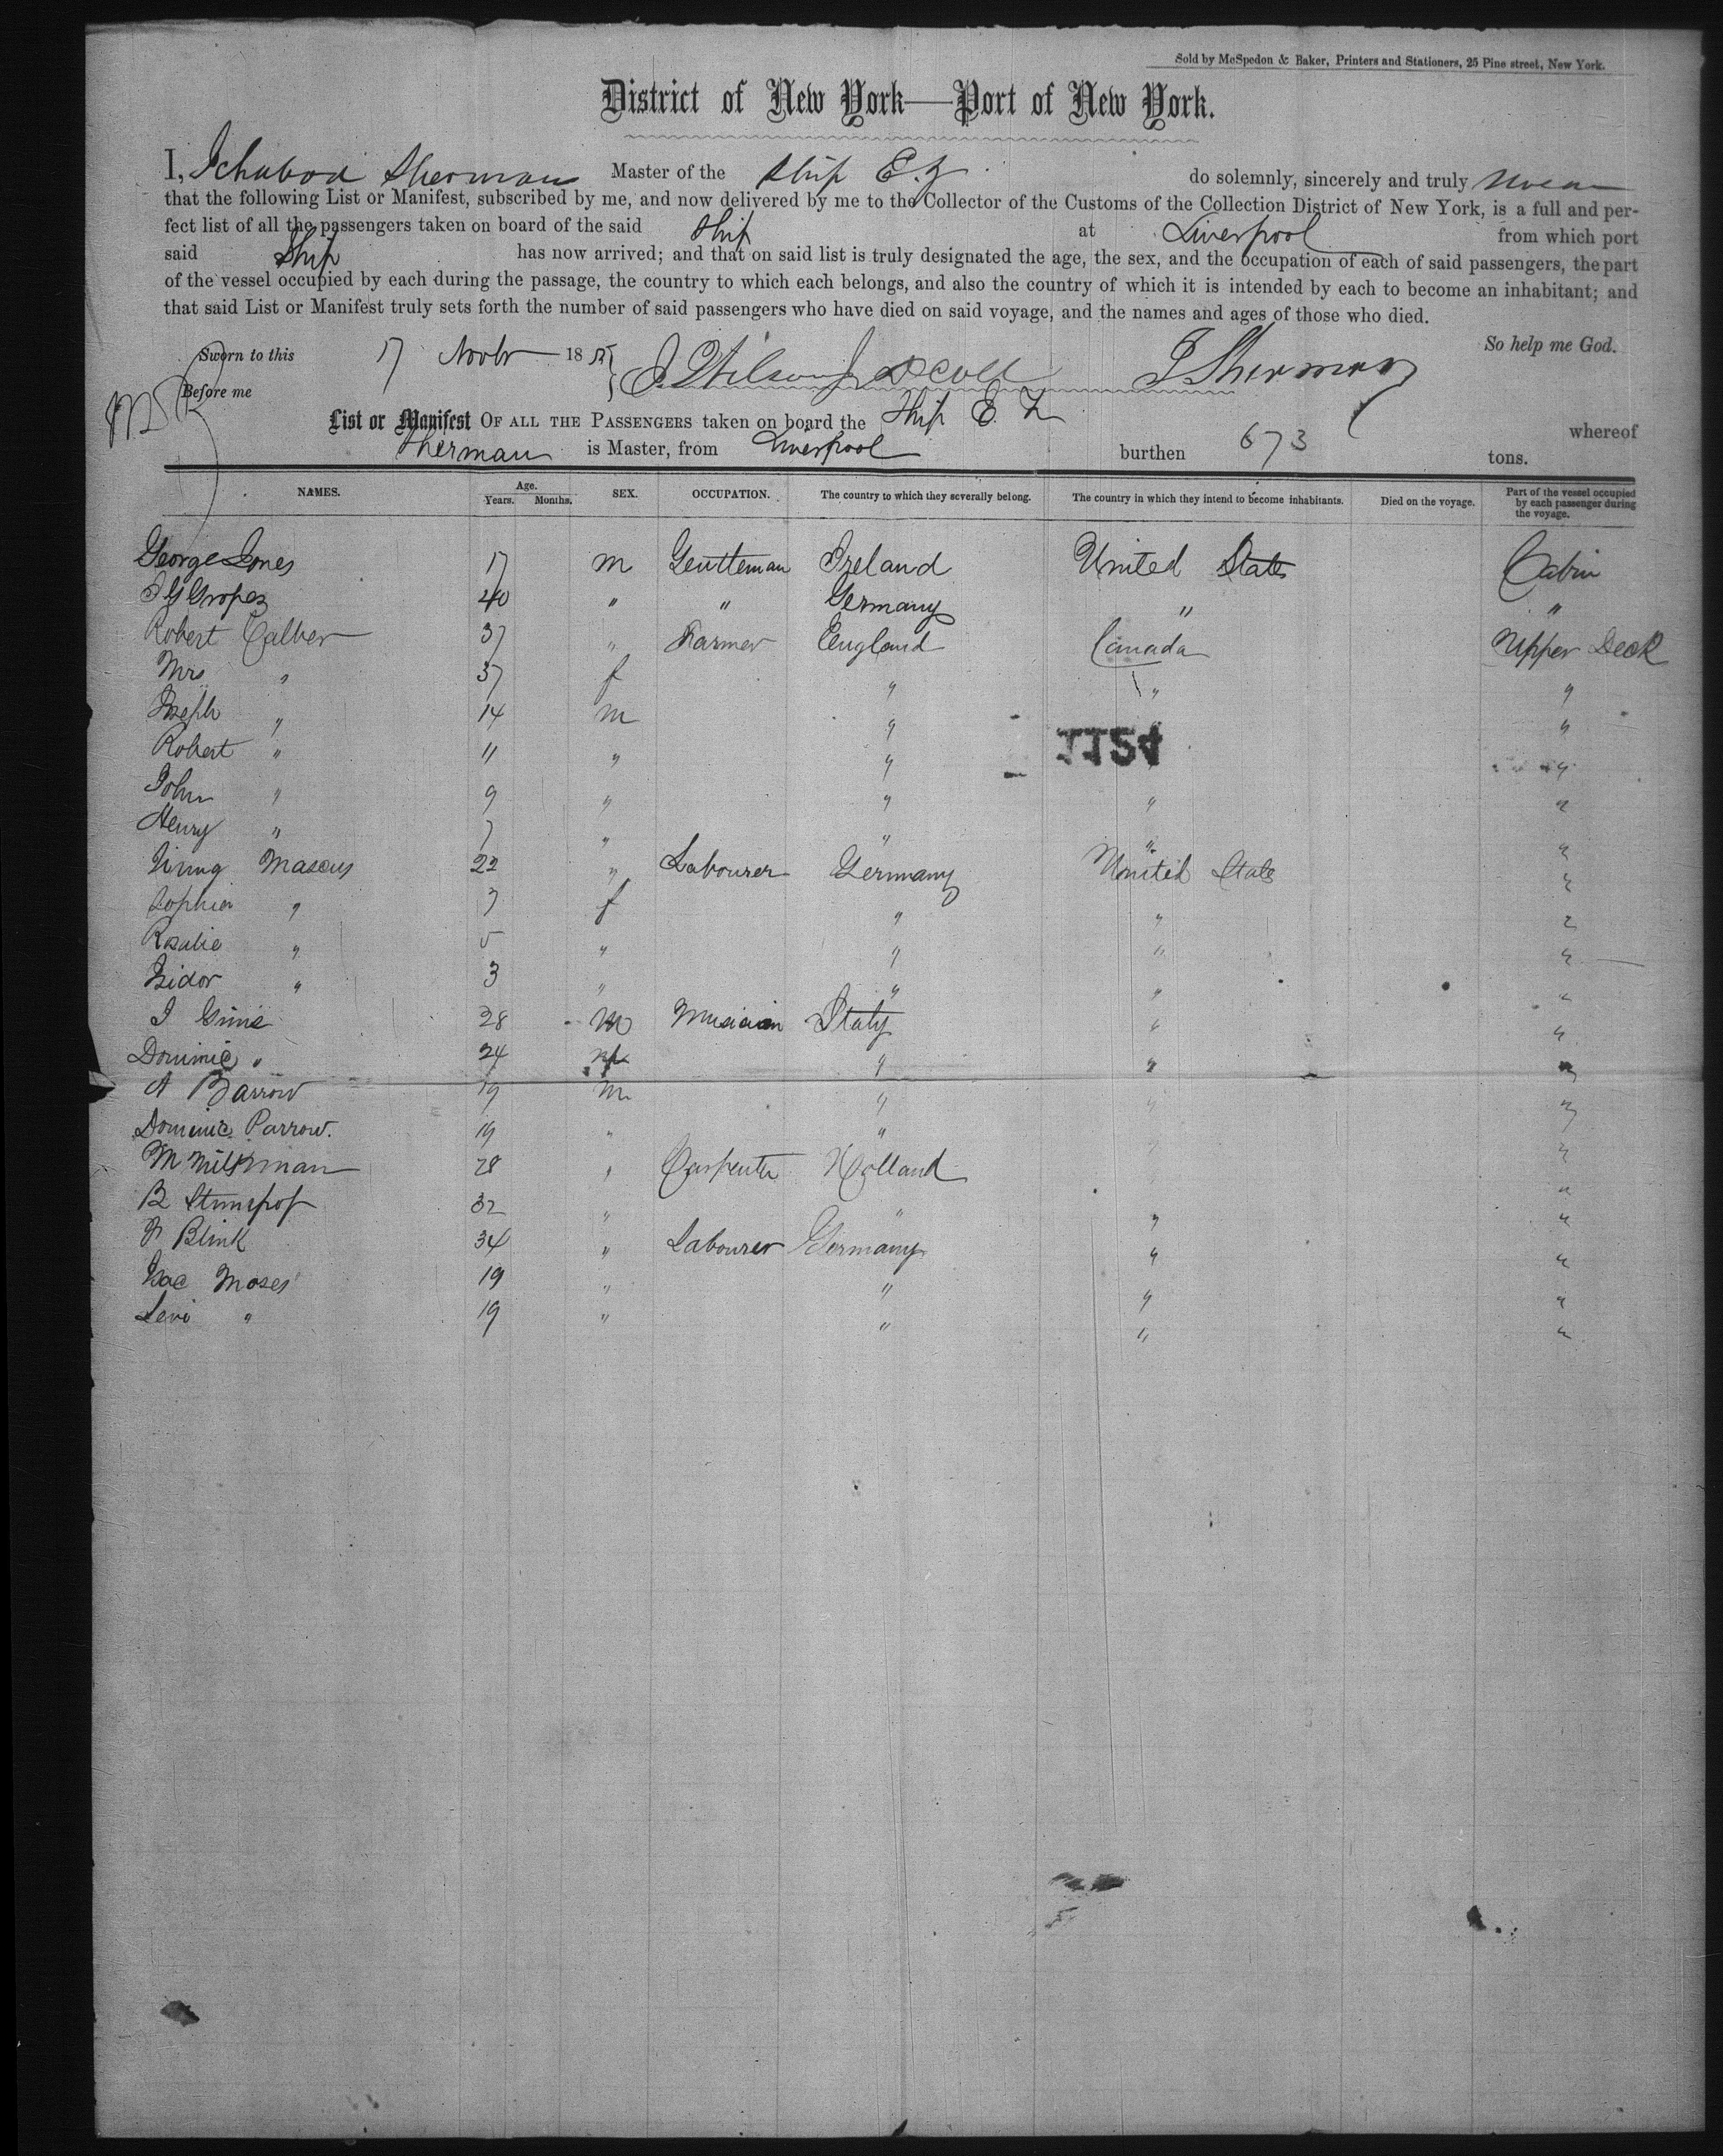 Sold by McSpedon & Baker, Printers and Stationers, 25 Pine street, New York.
District of New York—Port of New York.
I, Ichabod Sherman Master of the Ship E.Z do solemnly, sincerely and truly swear
that the following List or Manifest, subscribed by me, and now delivered by me to the Collector of the Customs of the Collection District of New York, is a full and per-
fect list of all the passengers taken on board of the said Ship at Liverpool from which port
said Ship has now arrived; and that on said list is truly designated the age, the sex, and the occupation of each of said passengers, the part
of the vessel occupied by each during the passage, the country to which each belongs, and also the country of which it is intended by each to become an inhabitant; and
that said List or Manifest truly sets forth the number of said passengers who have died on said voyage, and the names and ages of those who died.
So help me God.
Sworn to this 17 Novbr 185 I Sherman
Before me
List or Manifest OF ALL THE PASSENGERS taken on board the Ship E. Z whereof
Sherman is Master, from Liverpool burthen 673 tons.
NAMES. Age. Years. Months. SEX. OCCUPATION. The country to which they severally belong. The country in which they intend to become inhabitants. Died on the voyage. Part of the vessel occupied by each passenger during the voyage.
George Jones 17 m Gentleman Ireland United States Cabin
40 " " Germany " "
Robert Calber 37 " Farmer England Canada Upper Deck
Mrs " 37 f " " "
Joseph " 14 m " "
Robert " 11 " " " "
1154
John " 9 " " " "
Henry " 7 " " " "
Mascus 22 " Labourer Germany United States "
Sophia " 7 f " " "
Rosalie " 5 " " " "
Isidor " 3 " " " "
28 m Musician Italy " "
Dominic " 24 " " "
A Barrow 19 m " " "
Dominic Parrow. 19 " " " "
M Milkman 28 " Carpenter Holland "
B 32 " " " "
Blink 34 " Labourer Germany " "
Isac Moses 19 " " " "
Levi " 19 " " " "